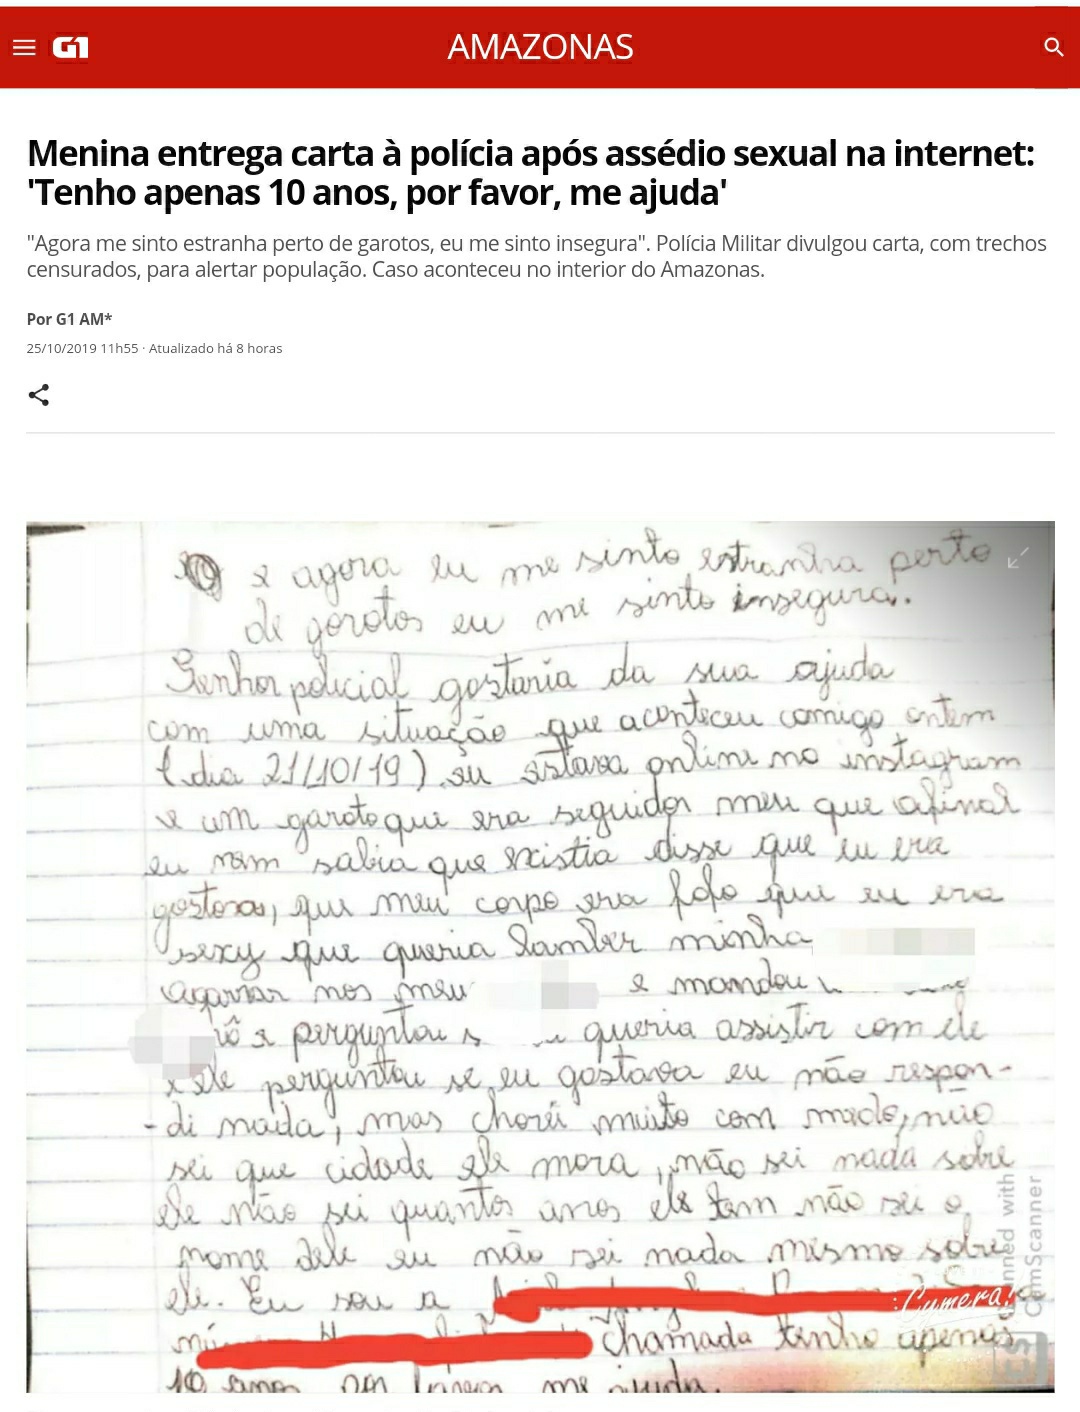 G1
AMAZONAS
Menina entrega carta à polícia após assédio sexual na internet:
'Tenho apenas 10 anos, por favor, me ajuda'
"Agora me sinto estranha perto de garotos, eu me sinto insegura". Polícia Militar divulgou carta, com trechos
censurados, para alertar população. Caso aconteceu no interior do Amazonas.
Por G1 AM*
25/10/2019 11h55 · Atualizado há 8 horas
e agora eu me sinto estranha perto
de garotos eu me sinto insegura.
Senhor policial gostaria da sua ajuda
com uma situação que aconteceu comigo ontem
(dia 21/10/19) eu estava online no instagram
e um garoto que era seguidor meu que afinal
eu nem sabia que existia disse que eu era
gostosa, que meu corpo era fofo que eu era
sexy que queria lamber minha
agarrar nos meu e mandou
e perguntou queria assistir com ele
e ele perguntou se eu gostava eu não respon-
-di nada, mas chorei muito com medo, não
sei que cidade ele mora, não sei nada sobre
ele não sei quantos anos ele tem não sei o
nome dele eu não sei nada mesmo sobre
ele. Eu sou a
chamada tenho apenas
10 anos por favor me ajuda.
Cymera
Scanned with
CamScanner
CS